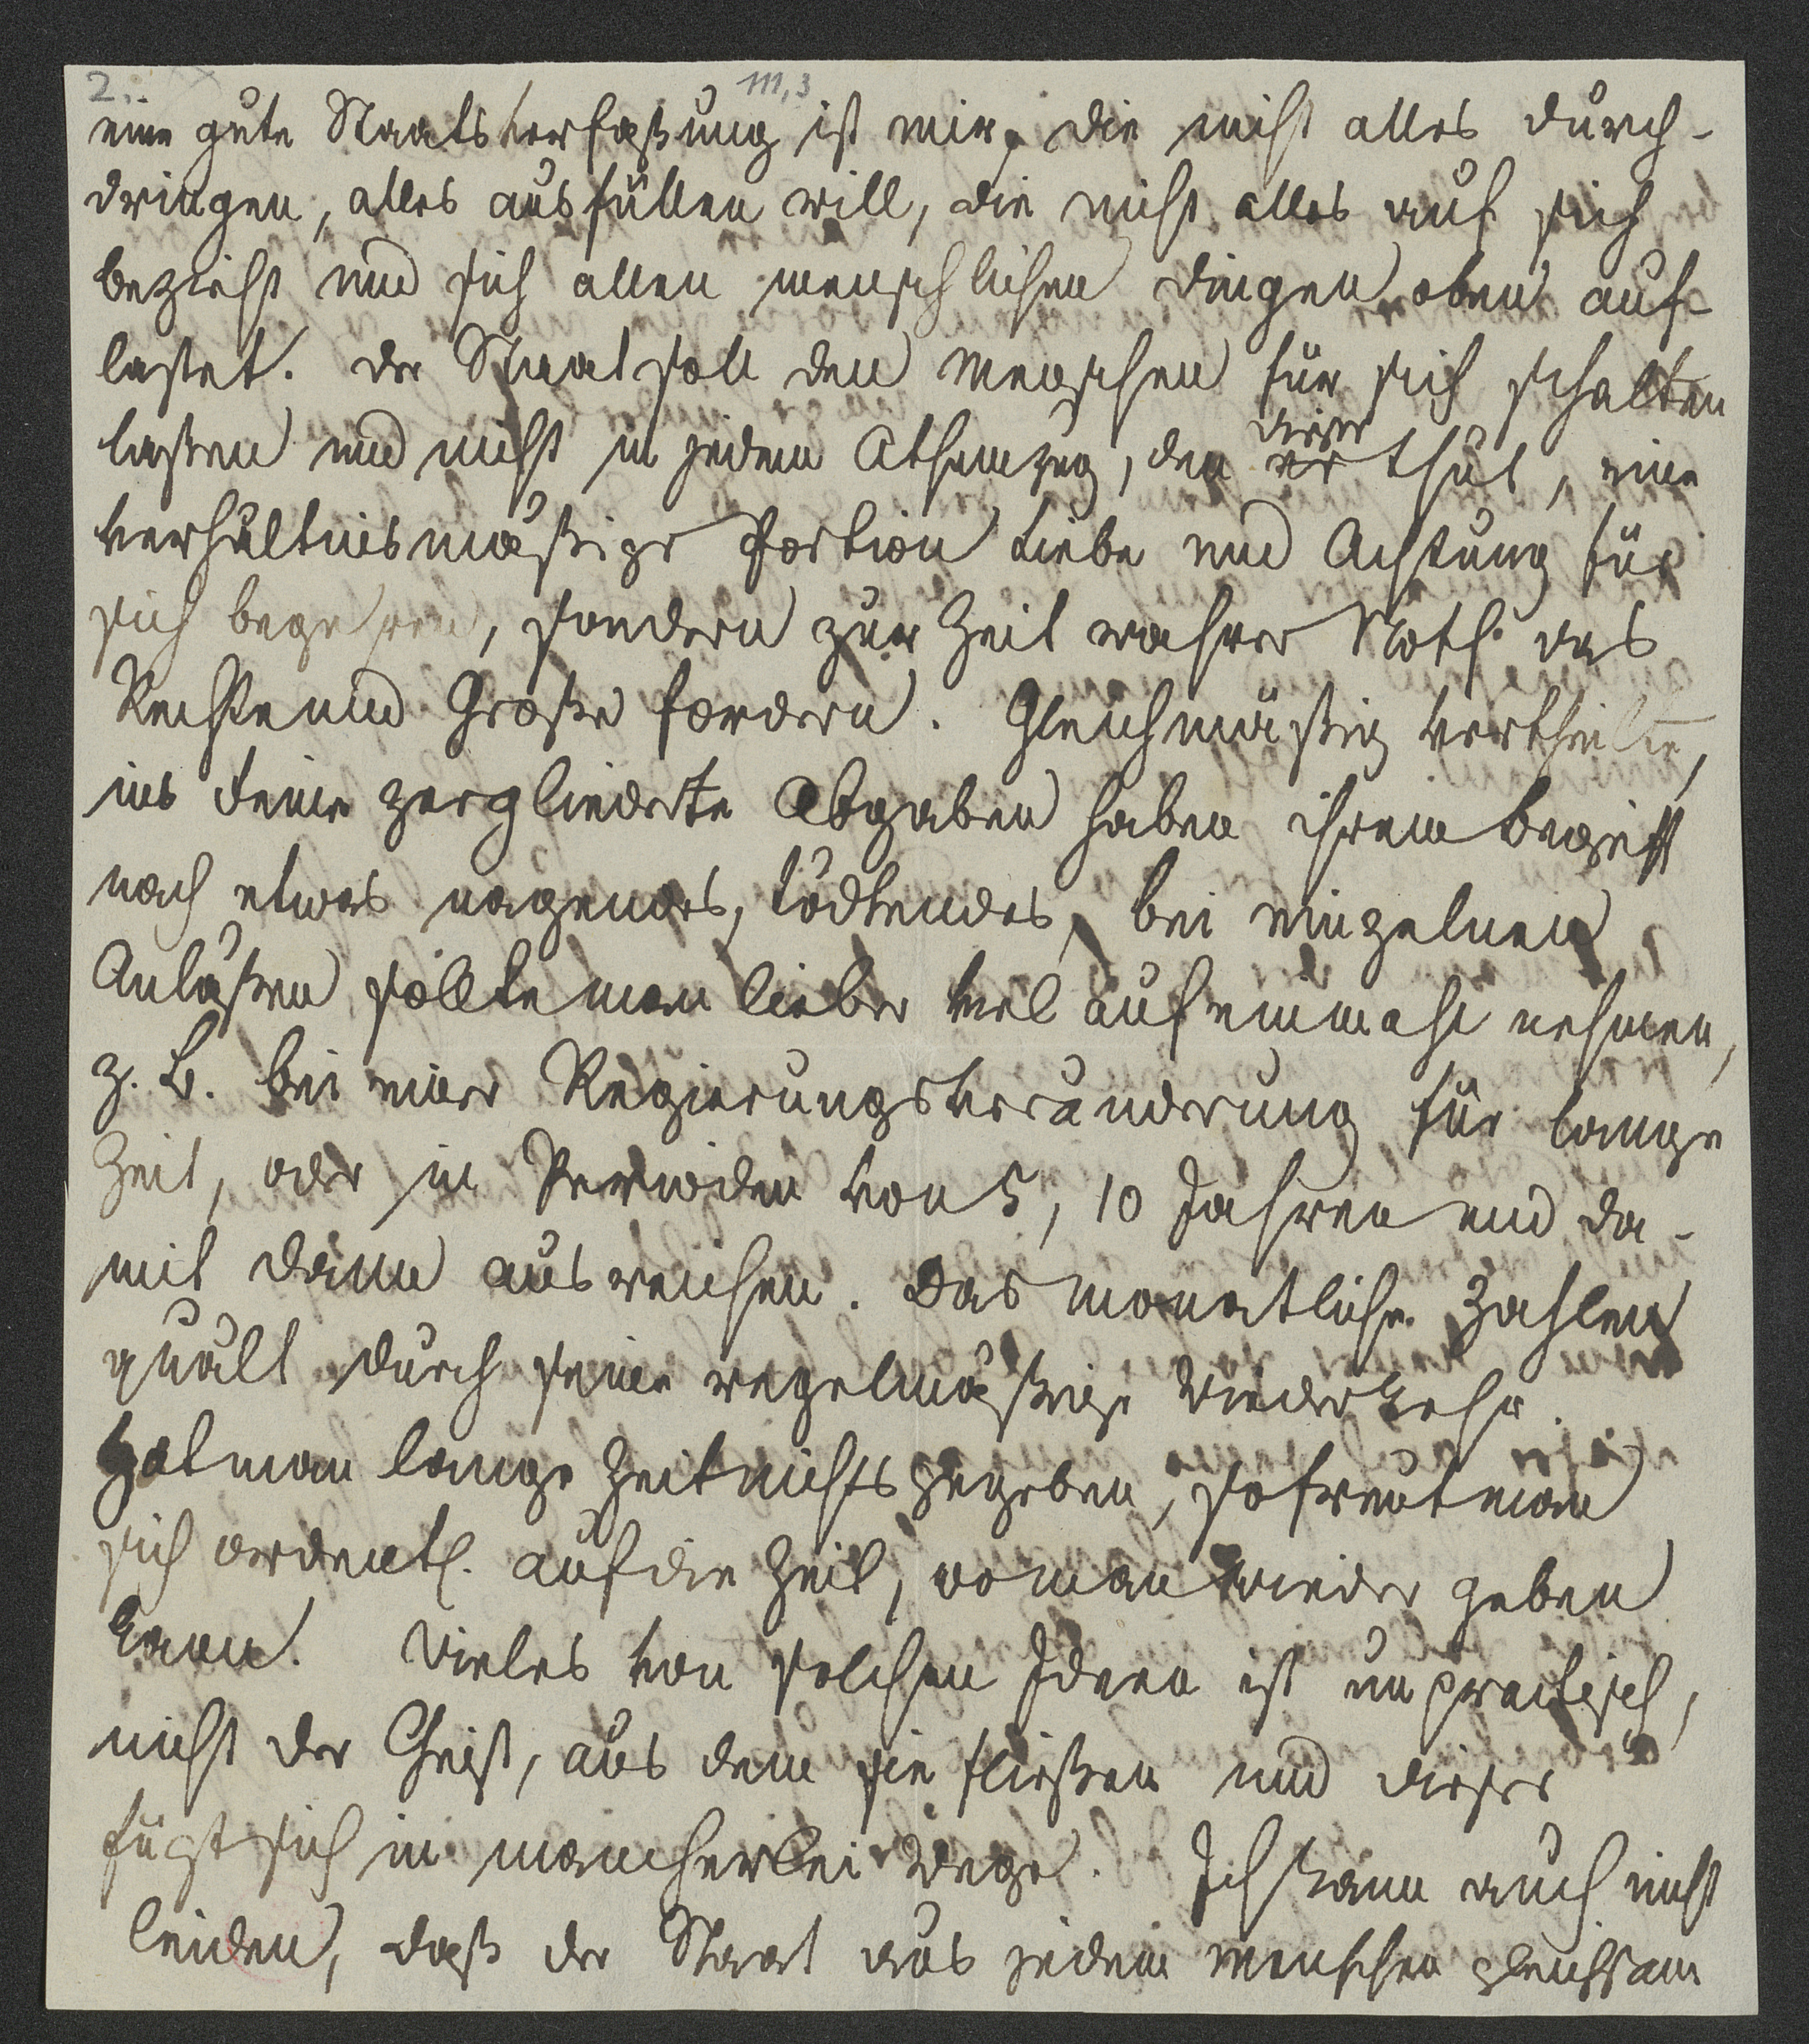 2.
111,3
eine gute Staatsverfaßung ist mir, die nicht alles durch-
dringen, alles ausfüllen will, die nicht alles auf sich
bezieht und sich allen menschlichen dingen oben auf-
lastet. der Staat soll den menschen für sich schalten
laßen und nicht in jedem Athemzug, den er thut, eine
dieser
verhältnismäßige Portion Liebe und Achtung für
sich begehren, sondern zur Zeit wahrer Noth das
Rechte und Große fordern. Gleichmäßig vertheilte,
ins feine zergliederte Abgaben haben ihrem begriff
nach etwas nagendes, tödtendes, bei einzelnen
Anläßen sollte man lieber viel auf einmahl nehmen,
z. B. bei einer Regierungsveränderung für lange
Zeit, oder in Perioden von 5, 10 Jahren und da-
mit dann ausreichen. das monatliche Zahlen
quält durch seine regelmäßige Wiederkehr.
Hat man lange Zeit nichts gegeben, so freut man
sich ordentl. auf die Zeit, wo man wieder geben
kann. Vieles von solchen Ideen ist unpractisch,
nicht der Geist, aus dem sie fließen und dieser
fügt sich in mancherlei Wege. Ich kann auch nicht
leiden, daß der Staat aus jedem menschen gleichsam